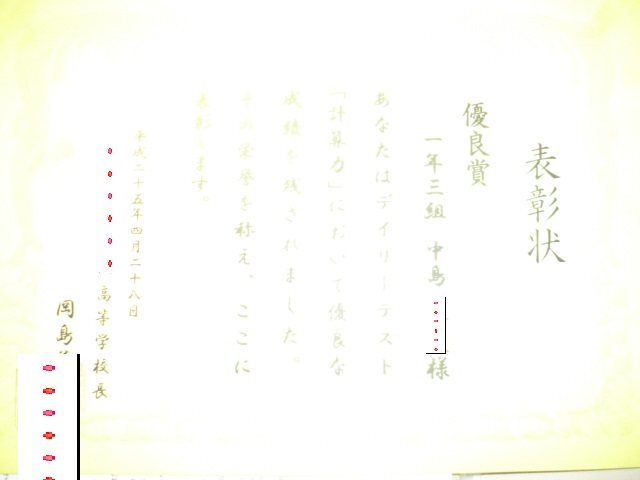 表彰状
優良賞
一年三組 中島 様
あなたはデイリーテスト
「計算力」において優良な
成績を残されました。
その栄誉を称え、ここに
表彰します。
平成二十五年四月二十八日
高等学校長
岡島